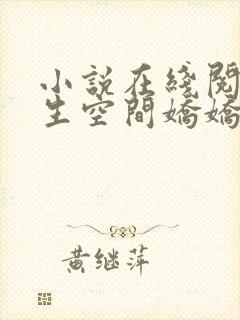 小説在綫閱
生空間嬌嬌
黄继萍